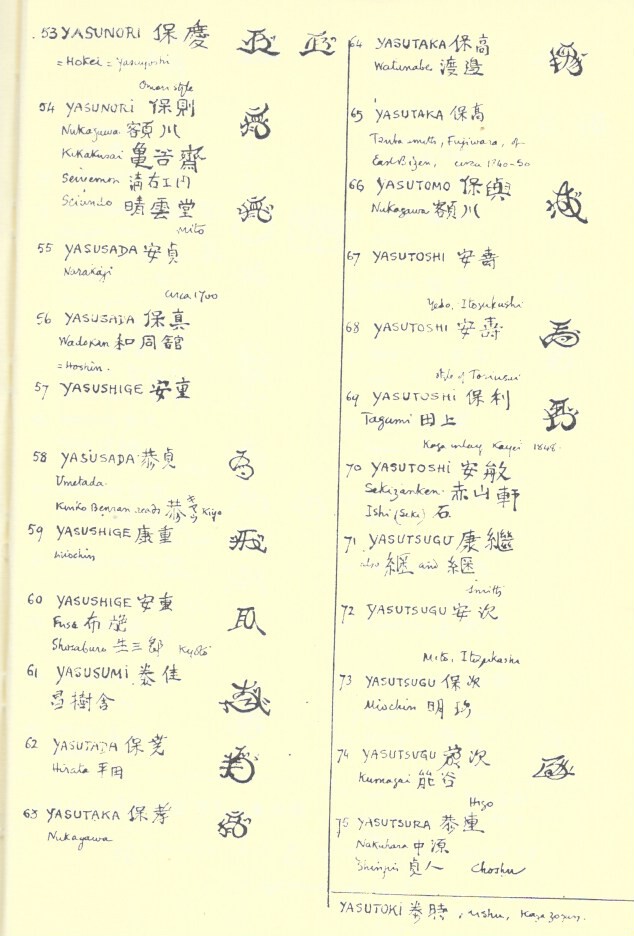 53 YASUNORI 保慶
= Hokei = Yasuyoshi
Omori style
54 YASUNORI 保則
Nukagawa 額川
Kikakusai 亀谷齋
Seiyemon
Seiundo 晴雲堂
Mito
55 YASUSADA 安貞
Narakaji
circa 1700
56 YASUSADA 保真
Wadokan 和同館
= Hoshin.
57 YASUSHIGE 安重
58 YASUSADA 恭貞
Umetada.
Kinko Benran reads 恭 Kiyo
59 YASUSHIGE 康重
Miochin
60 YASUSHIGE 安重
Fuse 布施
Shozaburo 生三郎 Kyōto
61 YASUSUMI 泰佳
昌樹舎
62 YASUTADA 保
Hirata 平田
63 YASUTAKA 保孝
Nukagawa
64 YASUTAKA 保高
Watanabe 渡邉
65 YASUTAKA 保高
Tsuba smith, Fujiwara, of
East Bizen, circa 1840-50
66 YASUTOMO 保與
Nukagawa 額川
67 YASUTOSHI 安壽
Yedo, Itosukashi
68 YASUTOSHI 安壽
style of
69 YASUTOSHI 保利
Tagami 田上
Kaga inlay Kayei 1848
70 YASUTOSHI 安敏
Sekizanken 赤山軒
Ishi (Seki) 石
71 YASUTSUGU 康繼
also 継 and 継
Smith
72 YASUTSUGU 安次
Mito, Itosukashi
73 YASUTSUGU 保次
Miochin 明珍
74 YASUTSUGU 次
Kumagai 熊谷
Higo
75 YASUTSURA 恭連
Nakahara 中源
貞人 Choshu
YASUTOKI 泰時, Ushu, Kaga zogan.